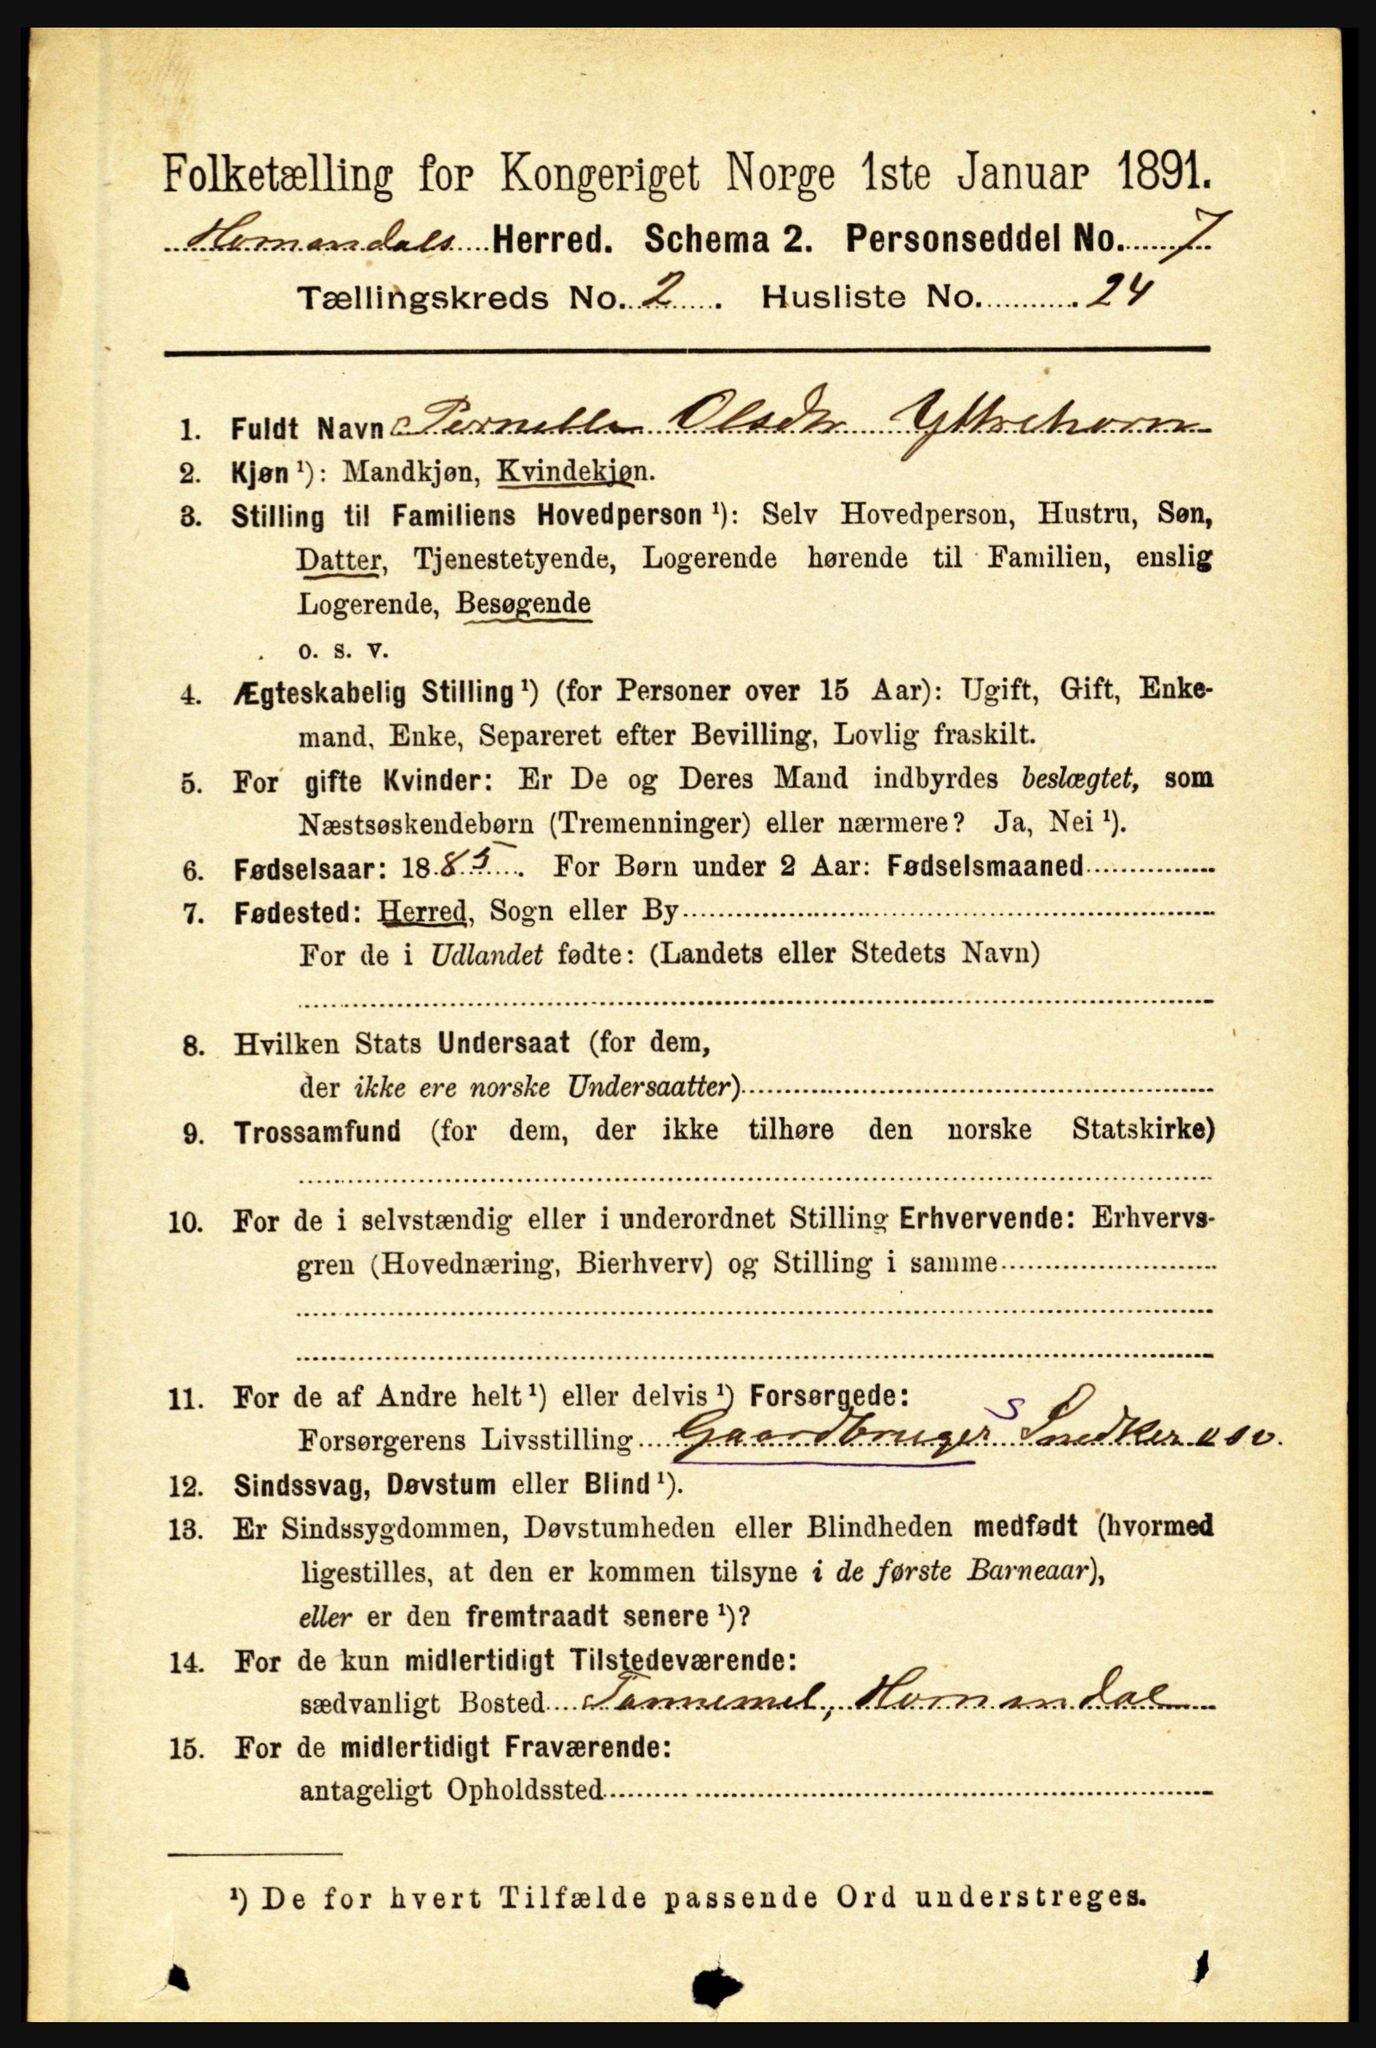 Folketælling for Kongeriget Norge 1ste Januar 1891.
Hornindals Herred. Schema 2. Personseddel No. 7
Tællingskreds No. 2. Husliste No. 24
1. Fuldt Navn Pernille Olsdtr Yttrehorn
2. Kjøn ¹): Mandkjøn, Kvindekjøn.
3. Stilling til Familiens Hovedperson ¹): Selv Hovedperson, Hustru, Søn,
Datter, Tjenestetyende, Logerende hørende til Familien, enslig
Logerende, Besøgende
o. s. v.
4. Ægteskabelig Stilling ¹) (for Personer over 15 Aar): Ugift, Gift, Enke-
mand, Enke, Separeret efter Bevilling, Lovlig fraskilt.
5. For gifte Kvinder: Er De og Deres Mand indbyrdes beslægtet, som
Næstsøskendebørn (Tremenninger) eller nærmere? Ja, Nei ¹).
6. Fødselsaar: 1885. For Børn under 2 Aar: Fødselsmaaned
7. Fødested: Herred, Sogn eller By
For de i Udlandet fødte: (Landets eller Stedets Navn)
8. Hvilken Stats Undersaat (for dem,
der ikke ere norske Undersaatter)
9. Trossamfund (for dem, der ikke tilhøre den norske Statskirke)
10. For de i selvstændig eller i underordnet Stilling Erhvervende: Erhvervs-
gren (Hovednæring, Bierhverv) og Stilling i samme
11. For de af Andre helt ¹) eller delvis ¹) Forsørgede:
Forsørgerens Livsstilling Gaardbruger S Snedker osv.
12. Sindssvag, Døvstum eller Blind ¹).
13. Er Sindssygdommen, Døvstumheden eller Blindheden medfødt (hvormed
ligestilles, at den er kommen tilsyne i de første Barneaar),
eller er den fremtraadt senere ¹)?
14. For de kun midlertidigt Tilstedeværende:
sædvanligt Bosted Tannemel, Hornindal
15. For de midlertidigt Fraværende:
antageligt Opholdssted
¹) De for hvert Tilfælde passende Ord understreges.